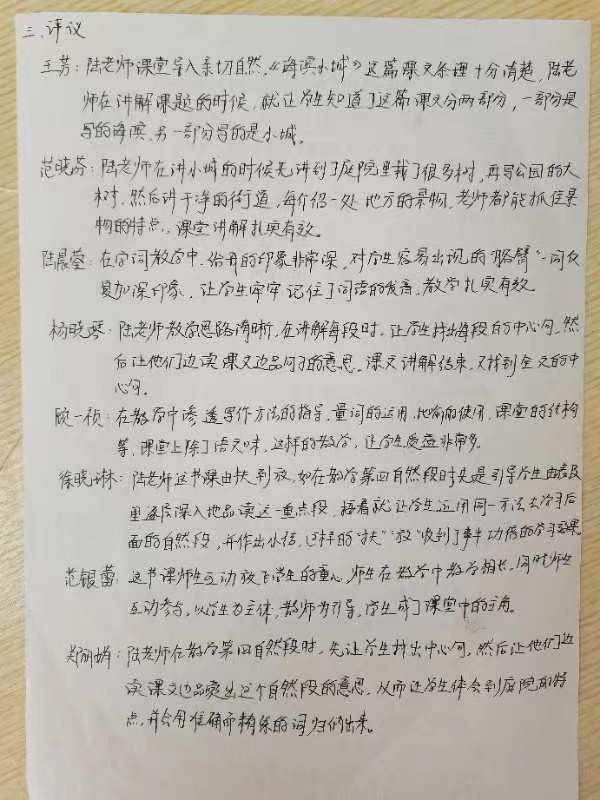 三、评议
王芳：陆老师课堂导入亲切自然，《海滨小城》这篇课文条理十分清楚，陆老
师在讲解课题的时候，就让学生知道了这篇课文分两部分，一部分是
写的海滨，另一部分写的是小城。
范晓芬：陆老师在讲小城的时候先讲到了庭院里栽了很多树，再写公园的大
树，然后讲干净的街道，每介绍一处地方的景物，老师都能抓住景
物的特点，课堂讲解扎实有效。
陆晨莹：在字词教学中，给我的印象非常深，对学生容易出现的"胳臂"一词反
复加深印象，让学生牢牢记住了词语的发音，教学扎实有效。
杨晓琴：陆老师教学思路清晰，在讲解每段时，让学生找出每段的中心句，然
后让他们边读课文边品句子的意思。课文讲解结束，又找到全文的中
心句。
顾一桢：在教学中渗透写作方法的指导，量词的运用，比喻的使用，课堂的结构
等，课堂上除了语文味，这样的教学，让学生受益非常多。
徐晓琳：陆老师这节课由扶到放，如在教学第四自然段时先是引导学生由表及
里逐层深入地品读这一重点段，接着就让学生运用同一方法去学习后
面的自然段，并作出小结，这样的"扶""放"收到了事半功倍的学习效果
范银蕾：这节课师生互动放飞学生的童心，师生在教学中教学相长，同时师生
互动参与，以学生为主体，教师为引导，学生成了课堂中的主角。
郑丽娟：陆老师在教学第四自然段时，先让学生找出中心句，然后让他们边
读课文边品读出这个自然段的意思，从而让学生体会到庭院的特
点，并会用准确而精练的词归纳出来。